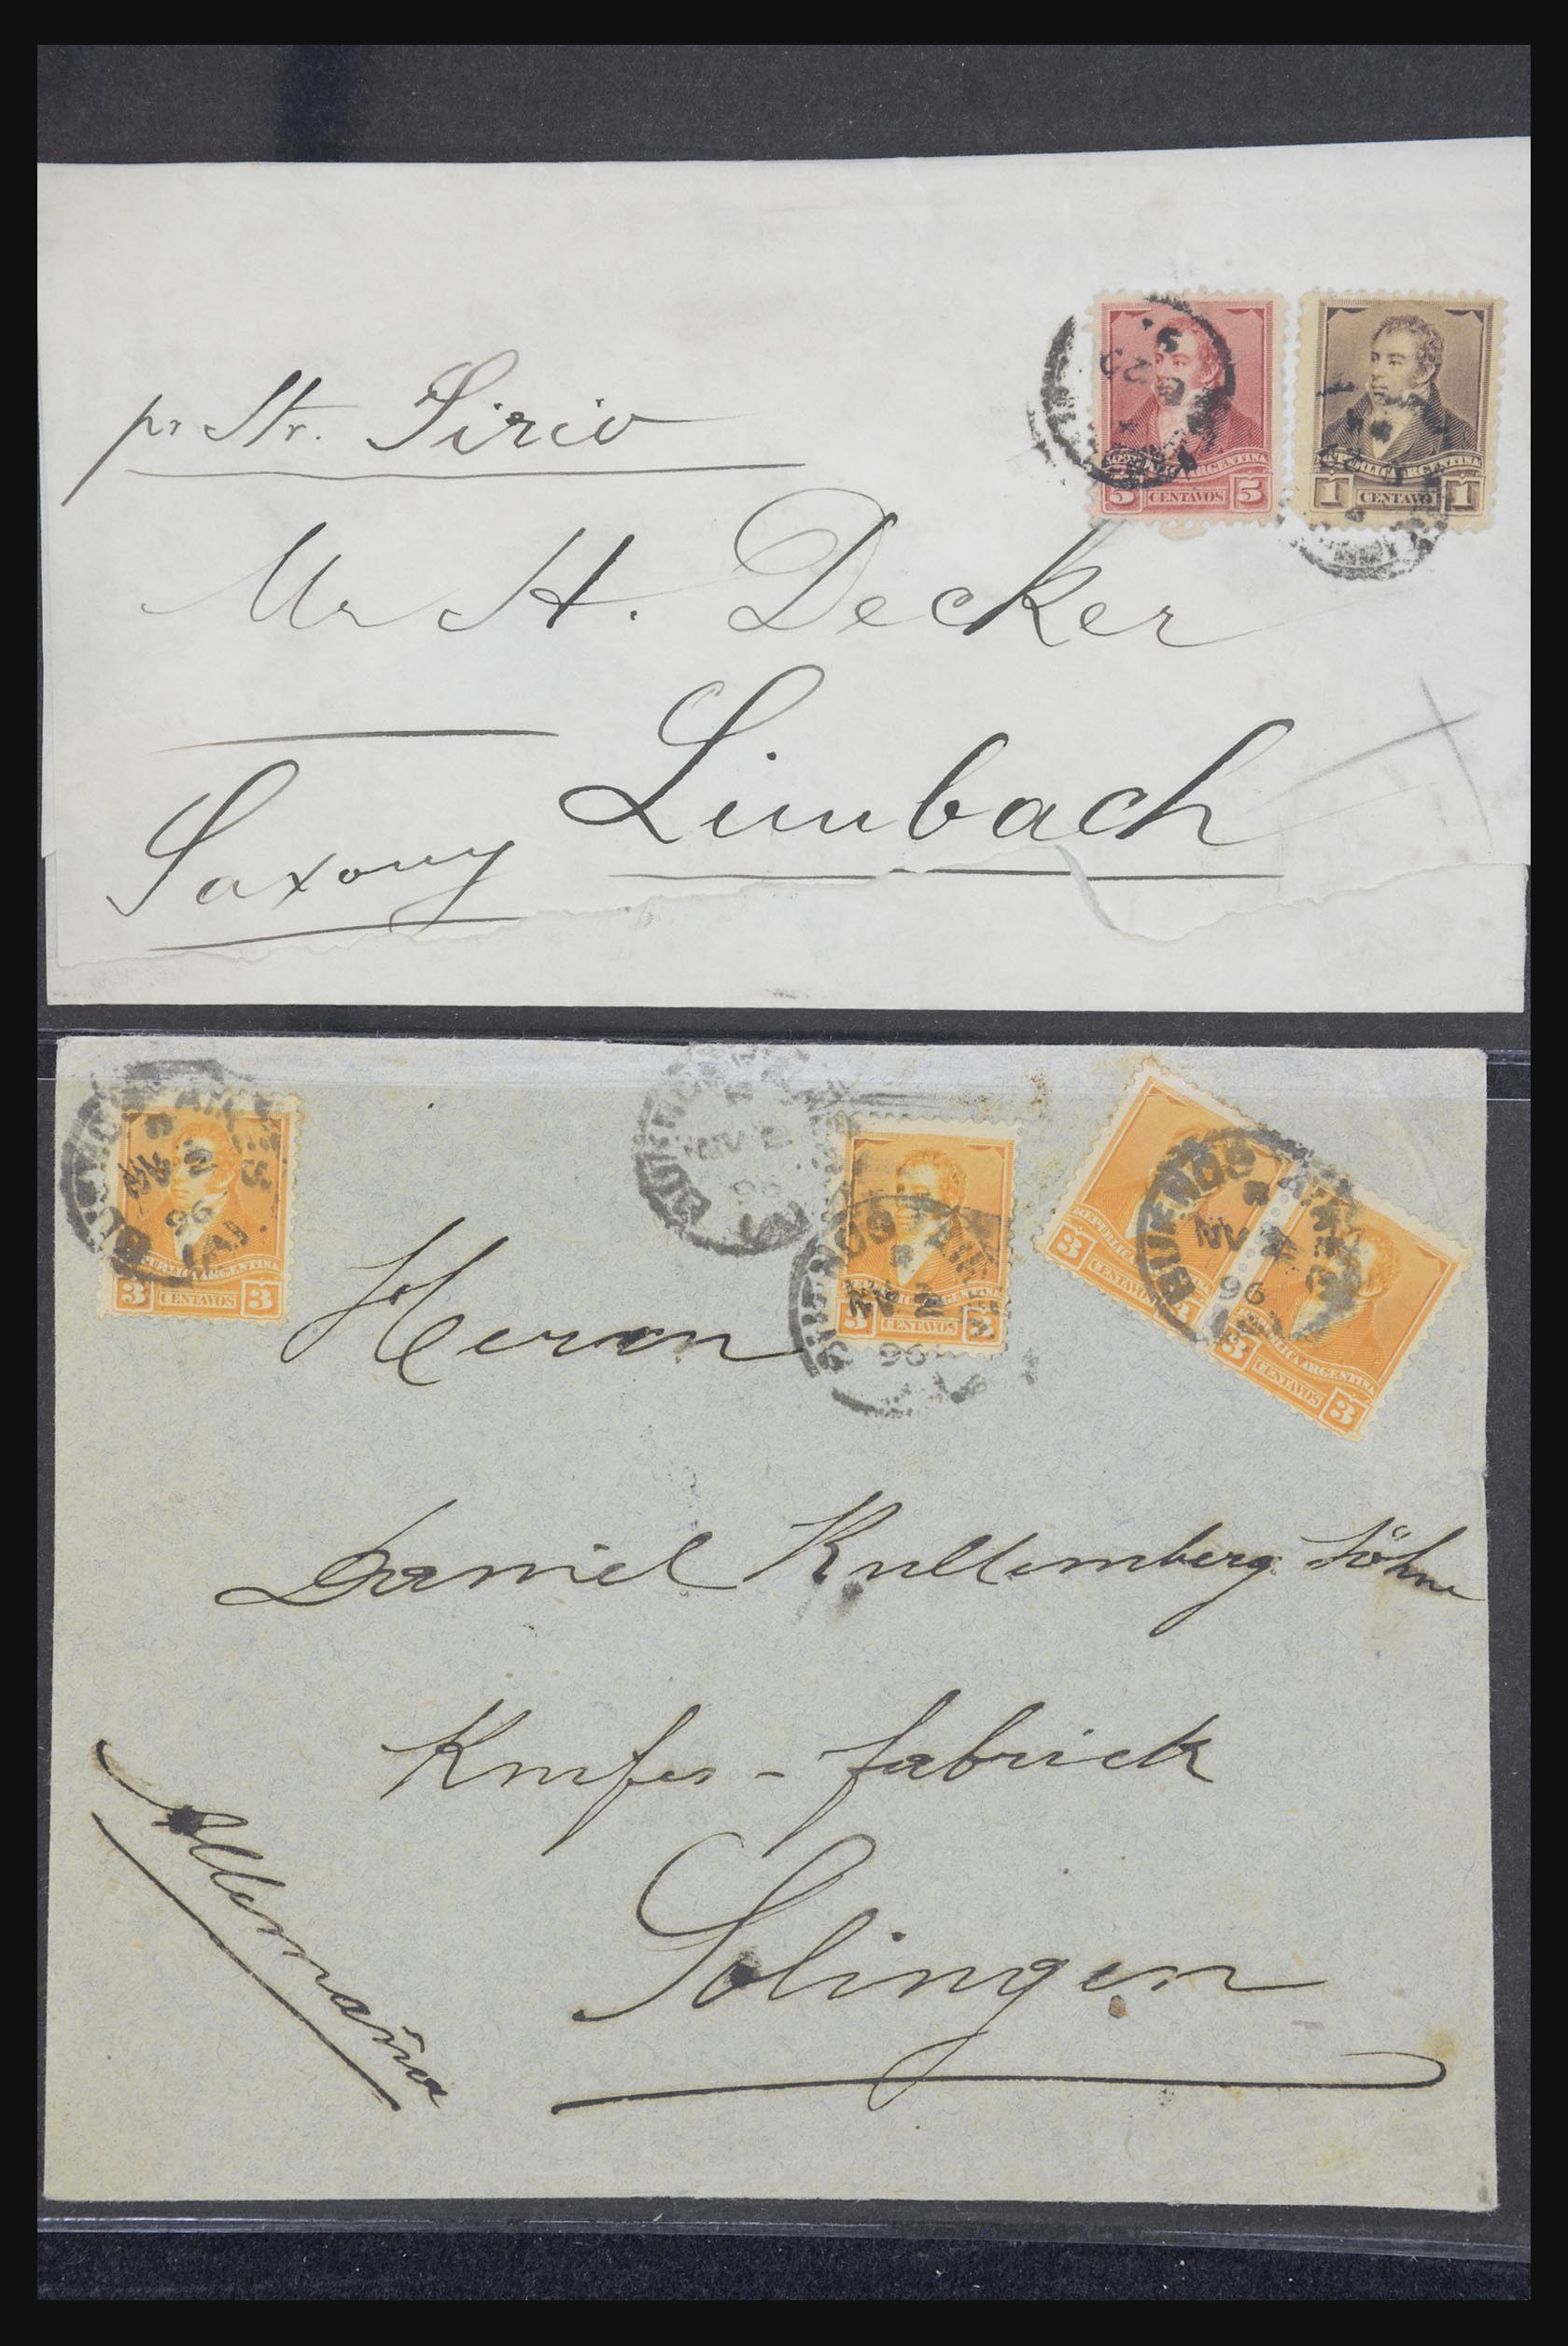 pr Str. Sirio
REPUBLICA ARGENTINA
5 CENTAVOS 5
REPUBLICA ARGENTINA
1 CENTAVO 1
Mr H. Decker
Limbach
Saxony
BUENOS AIRES
96
REPUBLICA ARGENTINA
3 CENTAVOS 3
BUENOS AIRES
96
BUENOS AIRES
96
REPUBLICA ARGENTINA
3 CENTAVOS 3
BUENOS AIRES
96
REPUBLICA ARGENTINA
3 CENTAVOS 3
REPUBLICA ARGENTINA
3 CENTAVOS 3
Herrn
Daniel Kullemberg Söhne
fabrick
Solingen
Allemaña